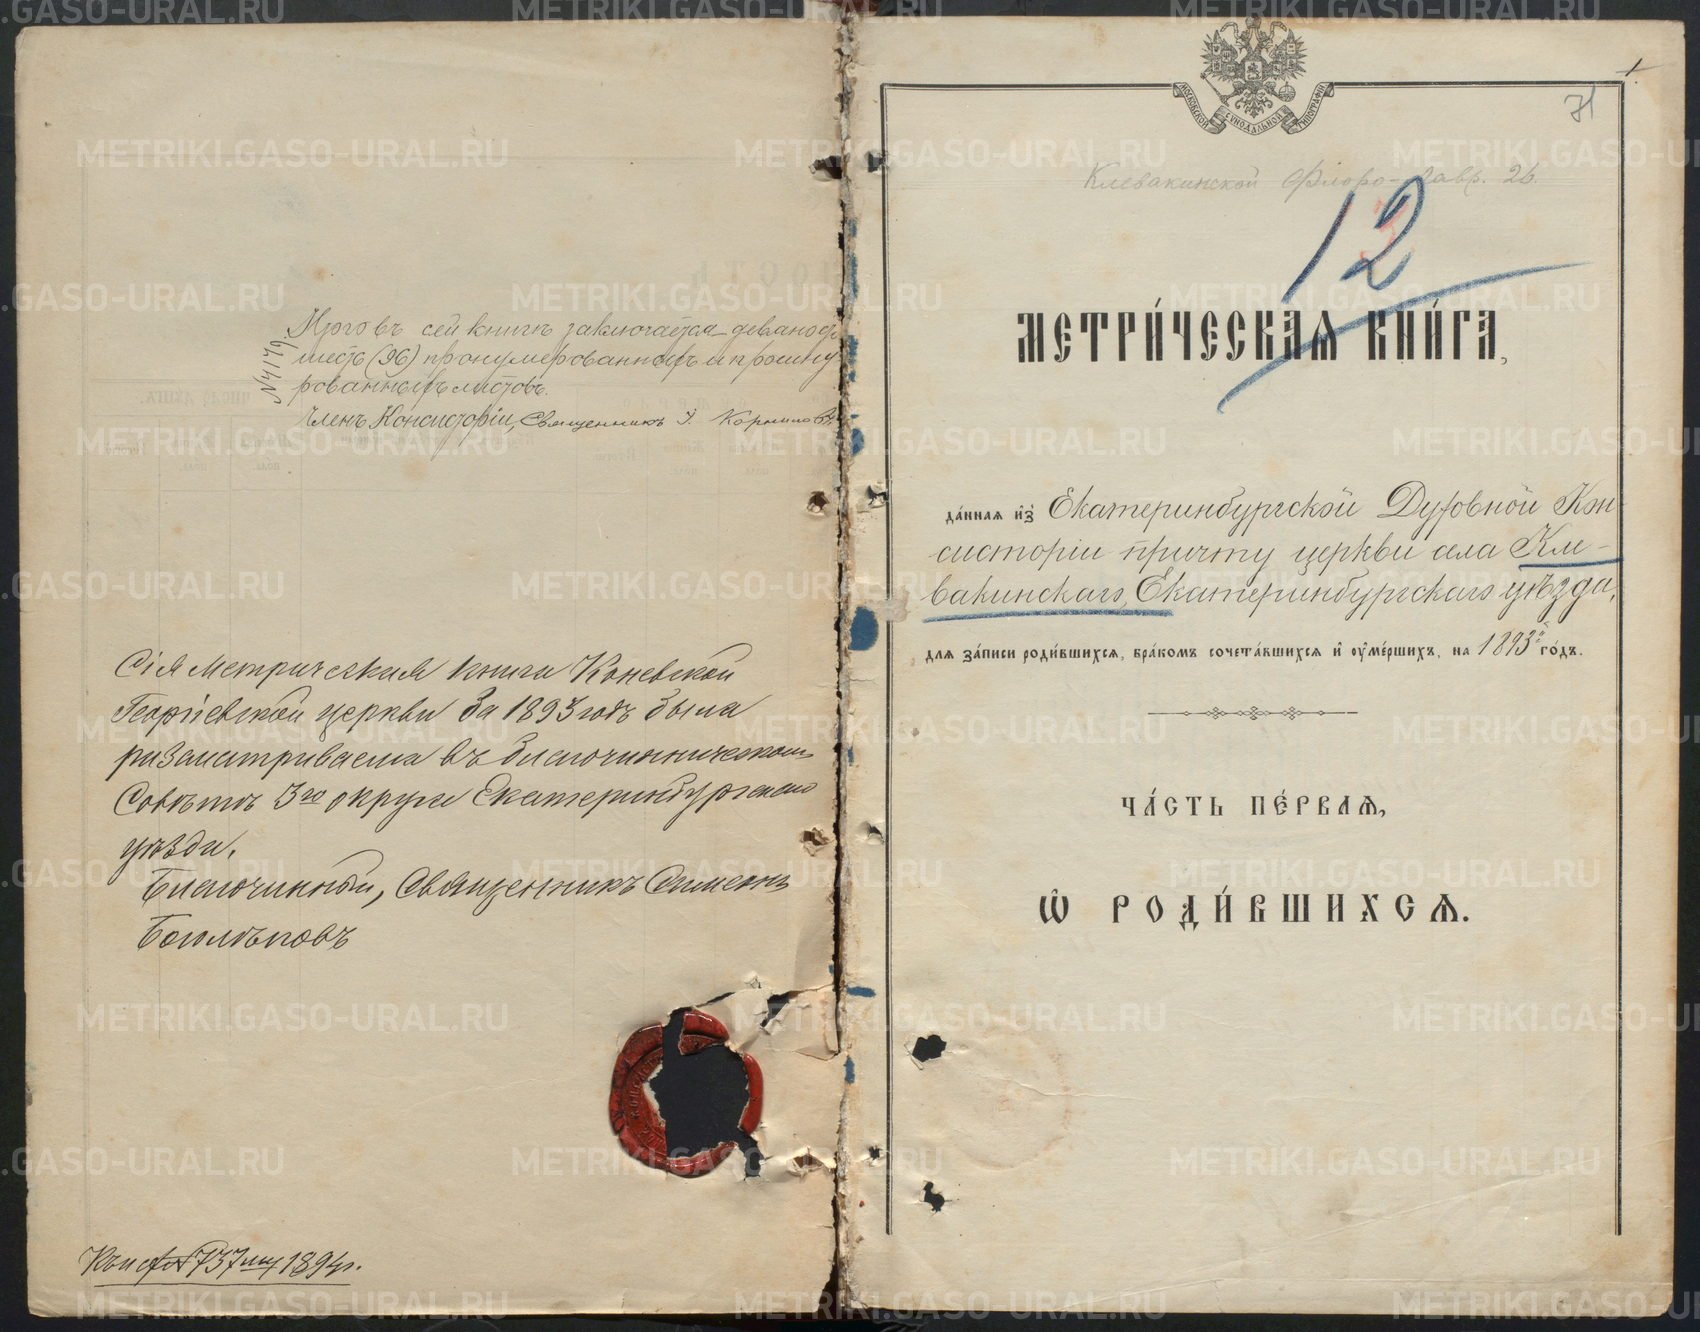 № 4179.
Итого въ сей книгѣ заключается девяносто
шесть (96) пронумерованныхъ и прошну
рованныхъ листовъ.
Членъ Консисторіи, Священникъ І. Корниловъ
Сія метрическая книга Коневской
Георгіевской церкви за 1893 годъ была
разсматриваема въ благочинническомъ
Совѣтѣ 3го округа Екатеринбургскаго
уѣзда.
Благочинный, Священникъ Симеонъ
1894 г.
МОСКОВСКОЙ СѴНОДАЛЬНОЙ ТИПОГРАФІИ
1.
71
Клевакинской Флоро-Лавр. 26.
12
МЕТРИ́ЧЕСКАѦ КНИ́ГА,
да́нная и҆з̾ Екатеринбургской Духовной Кон-
систоріи причту церкви села Кле-
вакинскаго, Екатеринбургскаго уѣзда,
для за́писи роди́вшихся, бра́комъ сочета́вшихся и҆ ᲂу҆ме́ршихъ, на 1893й го́дъ.
ЧА́СТЬ ПЕ́РВАѦ,
Ѽ РОДИ́ВШИХСѦ.
METRIKI.GASO-URAL.RU